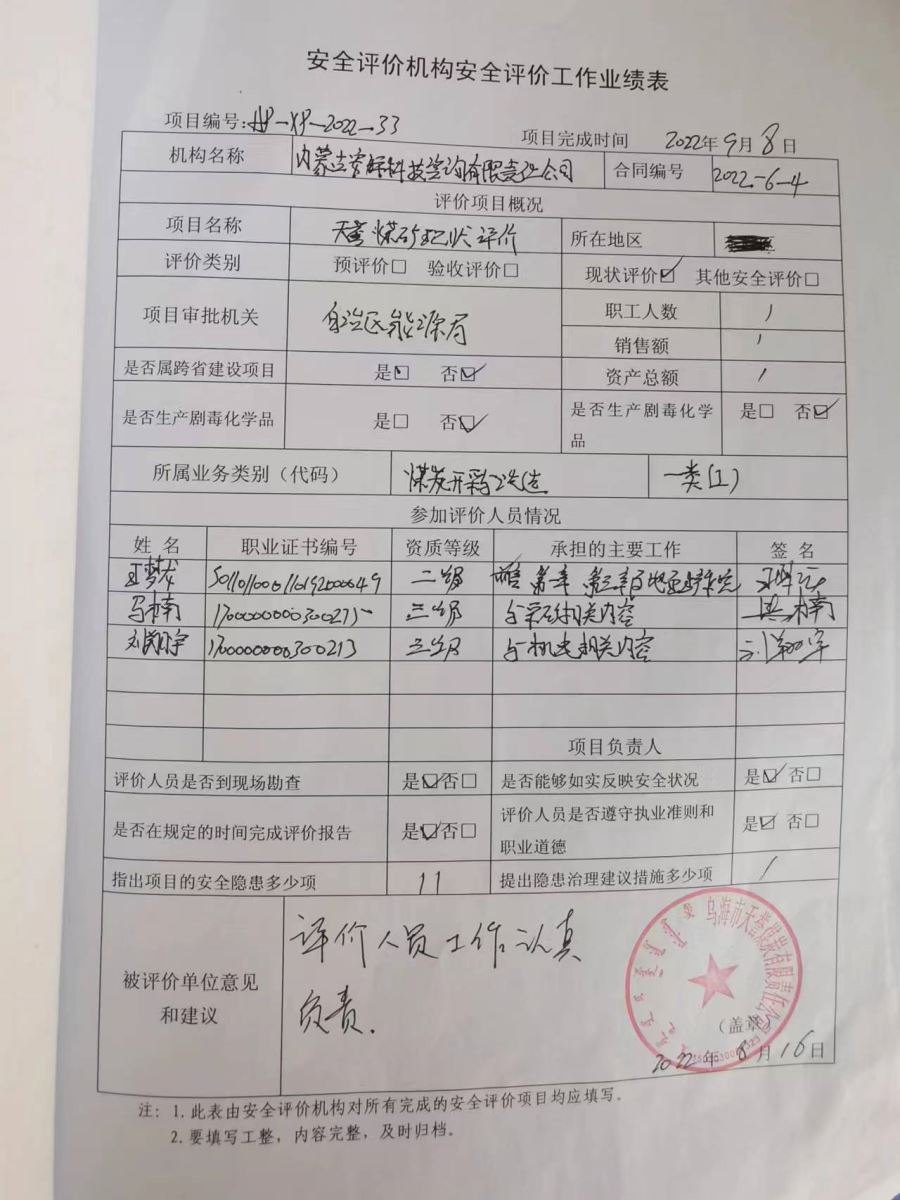 安全评价机构安全评价工作业绩表
项目编号:AP-XP-2022-33 项目完成时间 2022年9月8日
机构名称 科技咨询有限责任公司 合同编号 2022-6-4
评价项目概况
项目名称 天誉煤矿现状评价 所在地区
评价类别 预评价□ 验收评价□ 现状评价☑ 其他安全评价□
项目审批机关 自治区能源局 职工人数 /
销售额 /
是否属跨省建设项目 是□ 否☑ 资产总额 /
是否生产剧毒化学品 是□ 否☑ 是否生产剧毒化学品 是□ 否☑
所属业务类别（代码） 煤炭开采 一类(1)
参加评价人员情况
姓 名 职业证书编号 资质等级 承担的主要工作 签 名
王梦龙 S011011000110192000649 二级
马楠 三级 与采掘相关内容 马楠
刘翔宇 1700000000300213 三级 与机电相关内容 刘翔宇
项目负责人
评价人员是否到现场勘查 是☑否□ 是否能够如实反映安全状况 是☑ 否□
是否在规定的时间完成评价报告 是☑否□ 评价人员是否遵守执业准则和职业道德 是☑ 否□
指出项目的安全隐患多少项 11 提出隐患治理建议措施多少项 /
被评价单位意见和建议
评价人员工作认真
负责.
乌海市天誉煤炭有限责任公司
（盖章）
2022年8月16日
注：1.此表由安全评价机构对所有完成的安全评价项目均应填写。
2.要填写工整，内容完整，及时归档。